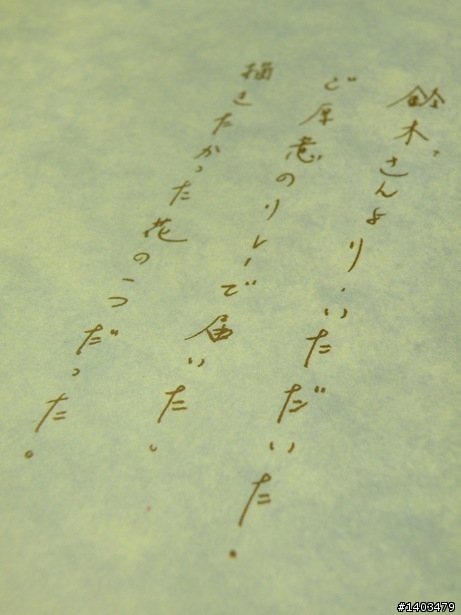 鈴木さんよりいただいた.
ご厚意のリレーで届いた。
描きたかった花の一つだった。
#1403479